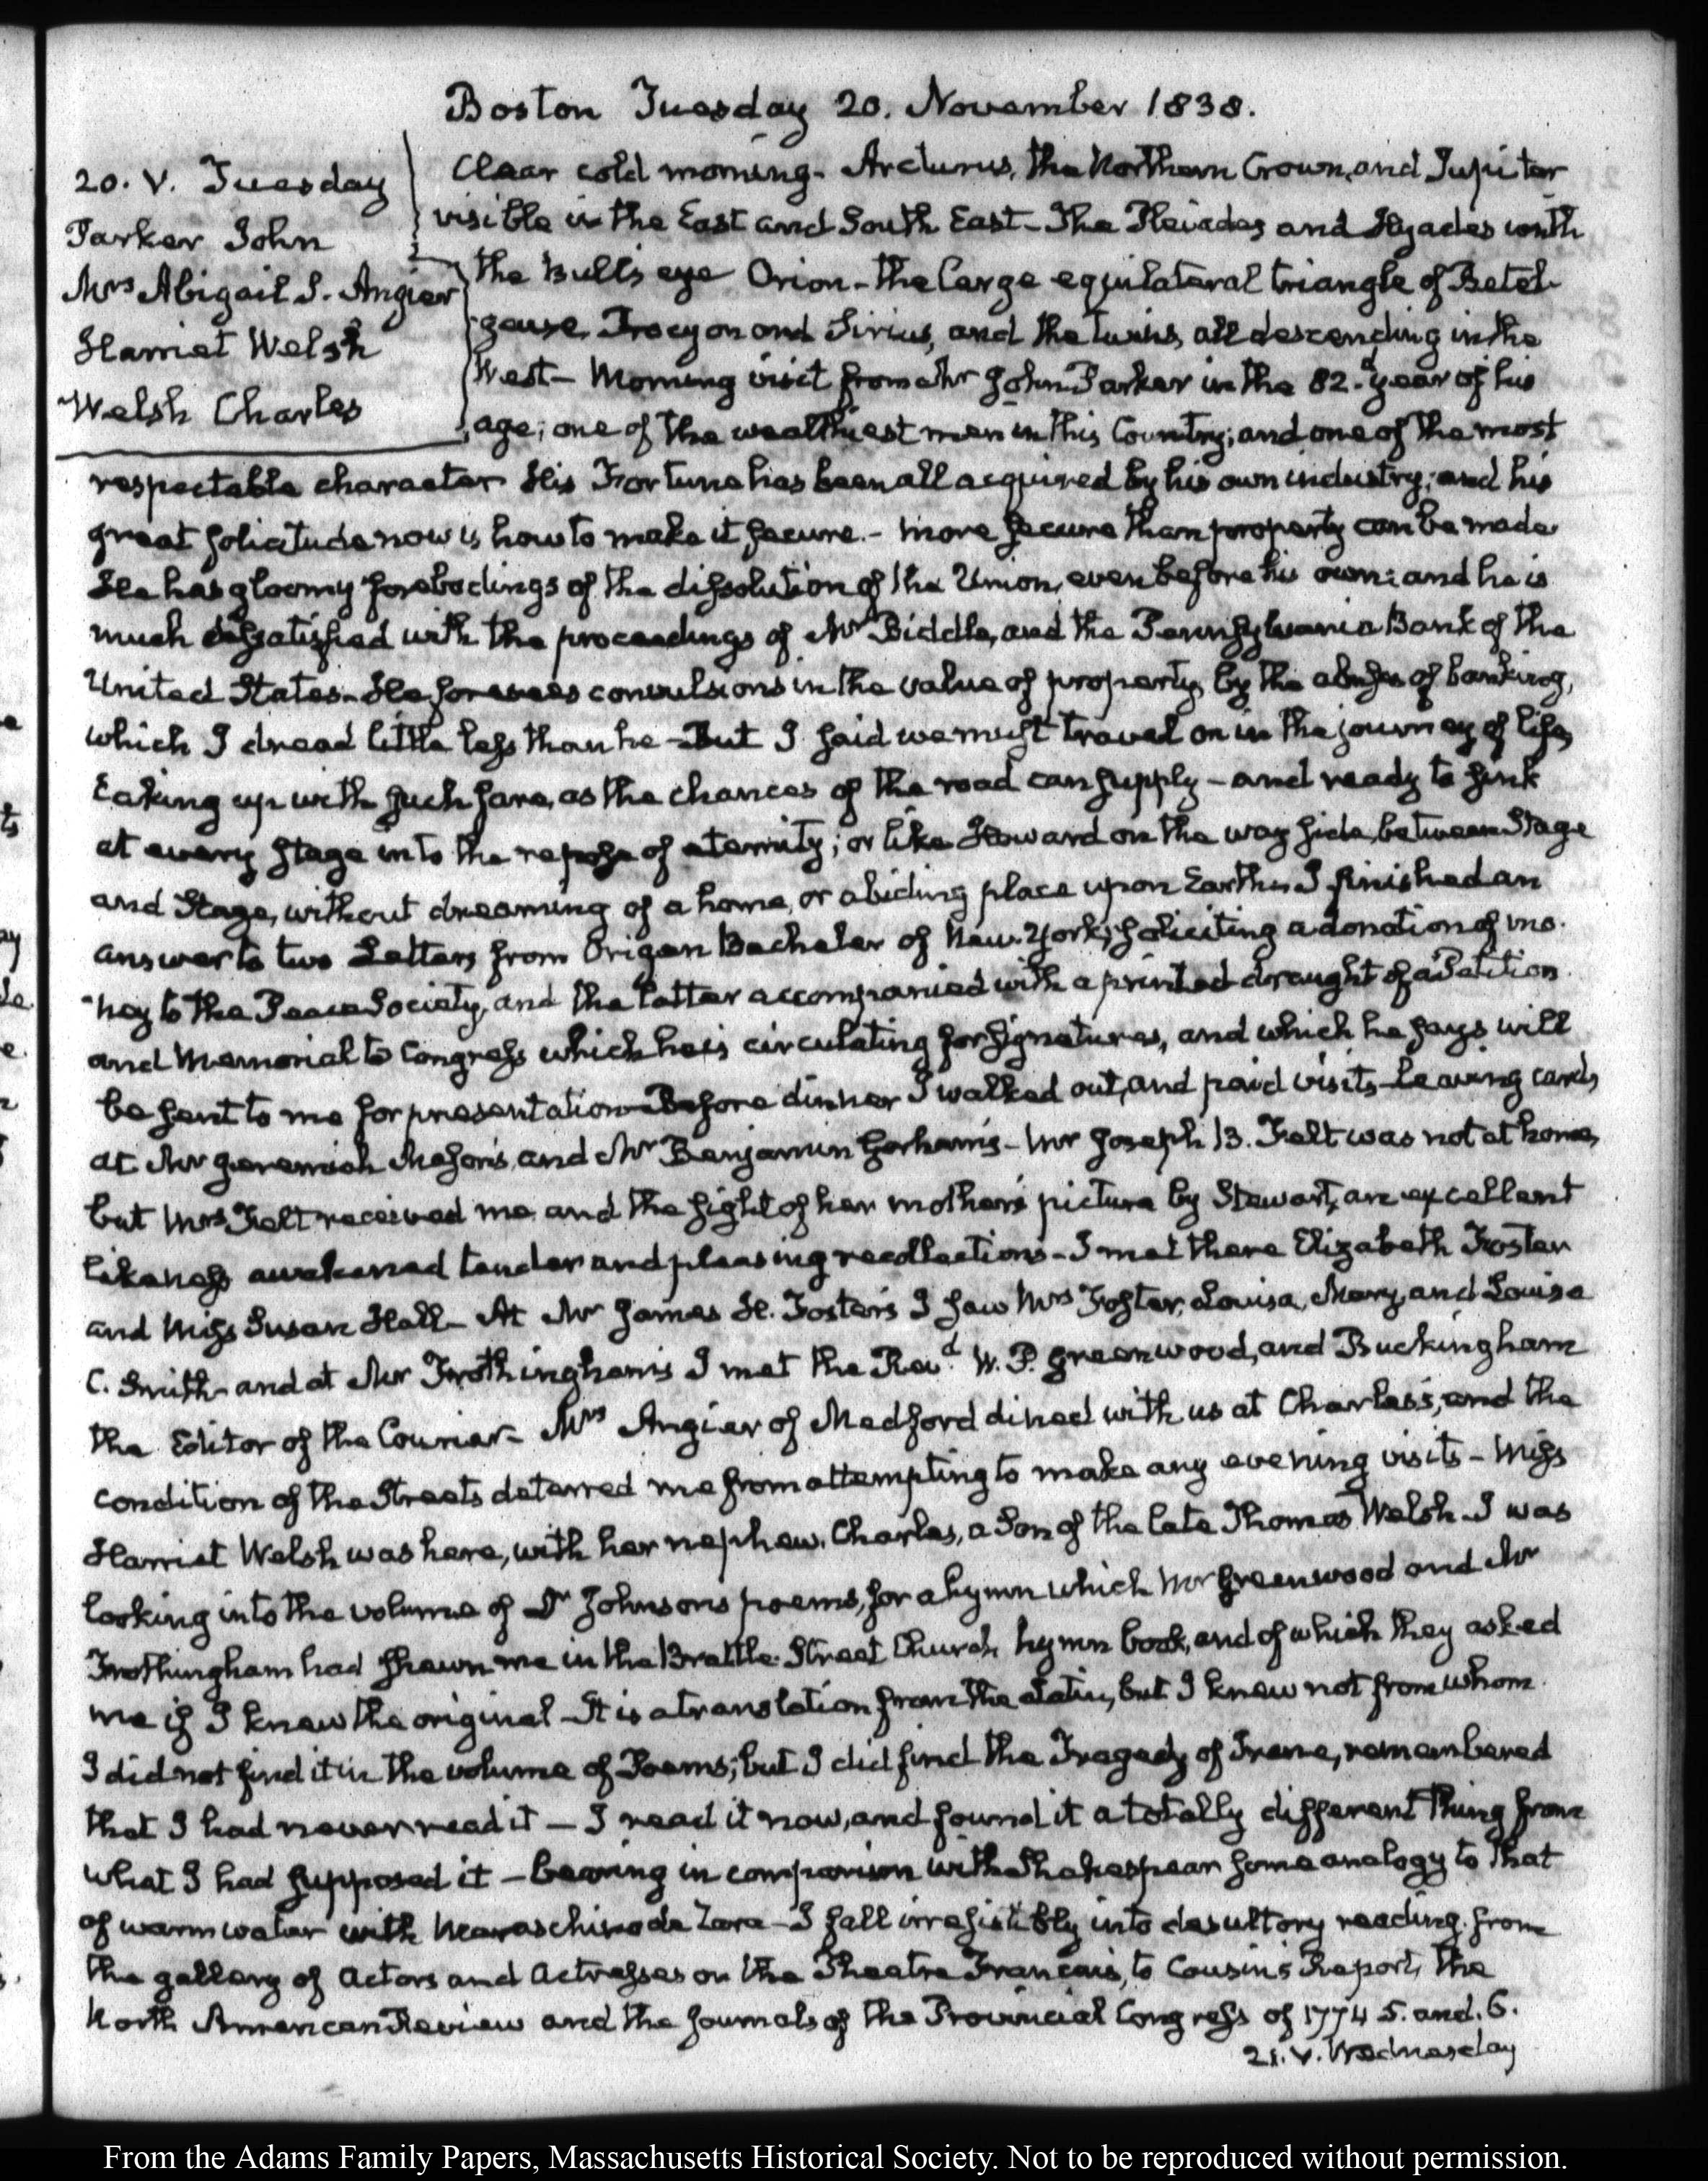 Boston Tuesday 20. November 1838.
20. V. Tuesday
Parker John
Mrs Abigail S. Angier
Harriet Welsh
Welsh Charles
Clear cold morning - Arcturus, the Northern Crown, and Jupiter
visible in the East and South East - The Pleiades and Hyades with
the Bulls eye Orion - the large equilateral triangle of Betel-
geuse, Procyon and Sirius, and the twins, all descending in the
West - Morning visit from Mr John Parker in the 82.d year of his
age; one of the wealthiest men in this Country; and one of the most
respectable character His Fortune has been all acquired by his own industry; and his
great solicitude now is how to make it secure. - more secure than property can be made
He has gloomy forebodings of the dissolution of the Union, even before his own: and he is
much dissatisfied with the proceedings of Mr Biddle, and the Pennsylvania Bank of the
United States - He foresees convulsions in the value of property, by the abuses of banking,
which I dread little less than he - But I said we must travel on in the journey of life,
taking up with such fare, as the chances of the road can supply - and ready to sink
at every stage into the repose of eternity; or like Howard on the way side, between Stage
and Stage, without dreaming of a home, or abiding place upon Earth - I finished an
answer to two Letters from Origen Bacheler of New-York, soliciting a donation of mo-
ney to the Peace Society, and the latter accompanied with a printed draught of a Petition
and Memorial to Congress which he is circulating for signatures, and which he says will
be sent to me for presentation - Before dinner I walked out, and paid visits - leaving cards
at Mr Jeremiah Mason's, and Mr Benjamin Gorham's - Mr Joseph B. Felt was not at home,
but Mrs Felt received me and the sight of her mother's picture by Stewart, an excellent
likeness awakened tender and pleasing recollections - I met there Elizabeth Foster
and Miss Susan Hall - At Mr James H. Foster's I saw Mrs Foster, Louisa, Mary, and Louisa
C. Smith - and at Mr Frothingham's I met the Revd. W. P. Greenwood, and Buckingham
the Editor of the Courier - Mrs Angier of Medford dined with us at Charles's, and the
condition of the Streets deterred me from attempting to make any evening visits - Miss
Harriet Welsh was here, with her nephew, Charles, a Son of the late Thomas Welsh - I was
looking into the volume of Dr Johnson's poems, for a hymn which Mr Greenwood and Mr
Frothingham had shewn me in the Brattle Street Church hymn book, and of which they asked
me if I knew the original - It is a translation from the Latin, but I knew not from whom.
I did not find it in the volume of Poems; but I did find the Tragedy of Irene, remembered
that I had never read it - I read it now, and found it a totally different thing from
what I had supposed it - bearing in comparison with Shakespear some analogy to that
of warm water with Maraschino de Zara - I fall irresistibly into desultory reading. from
the gallery of Actors and Actresses on the Theatre Francais, to Cousin's Report, the
North American Review and the Journals of the Provincial Congress of 1774 5. and. 6.
21. V. Wednesday
From the Adams Family Papers, Massachusetts Historical Society. Not to be reproduced without permission.